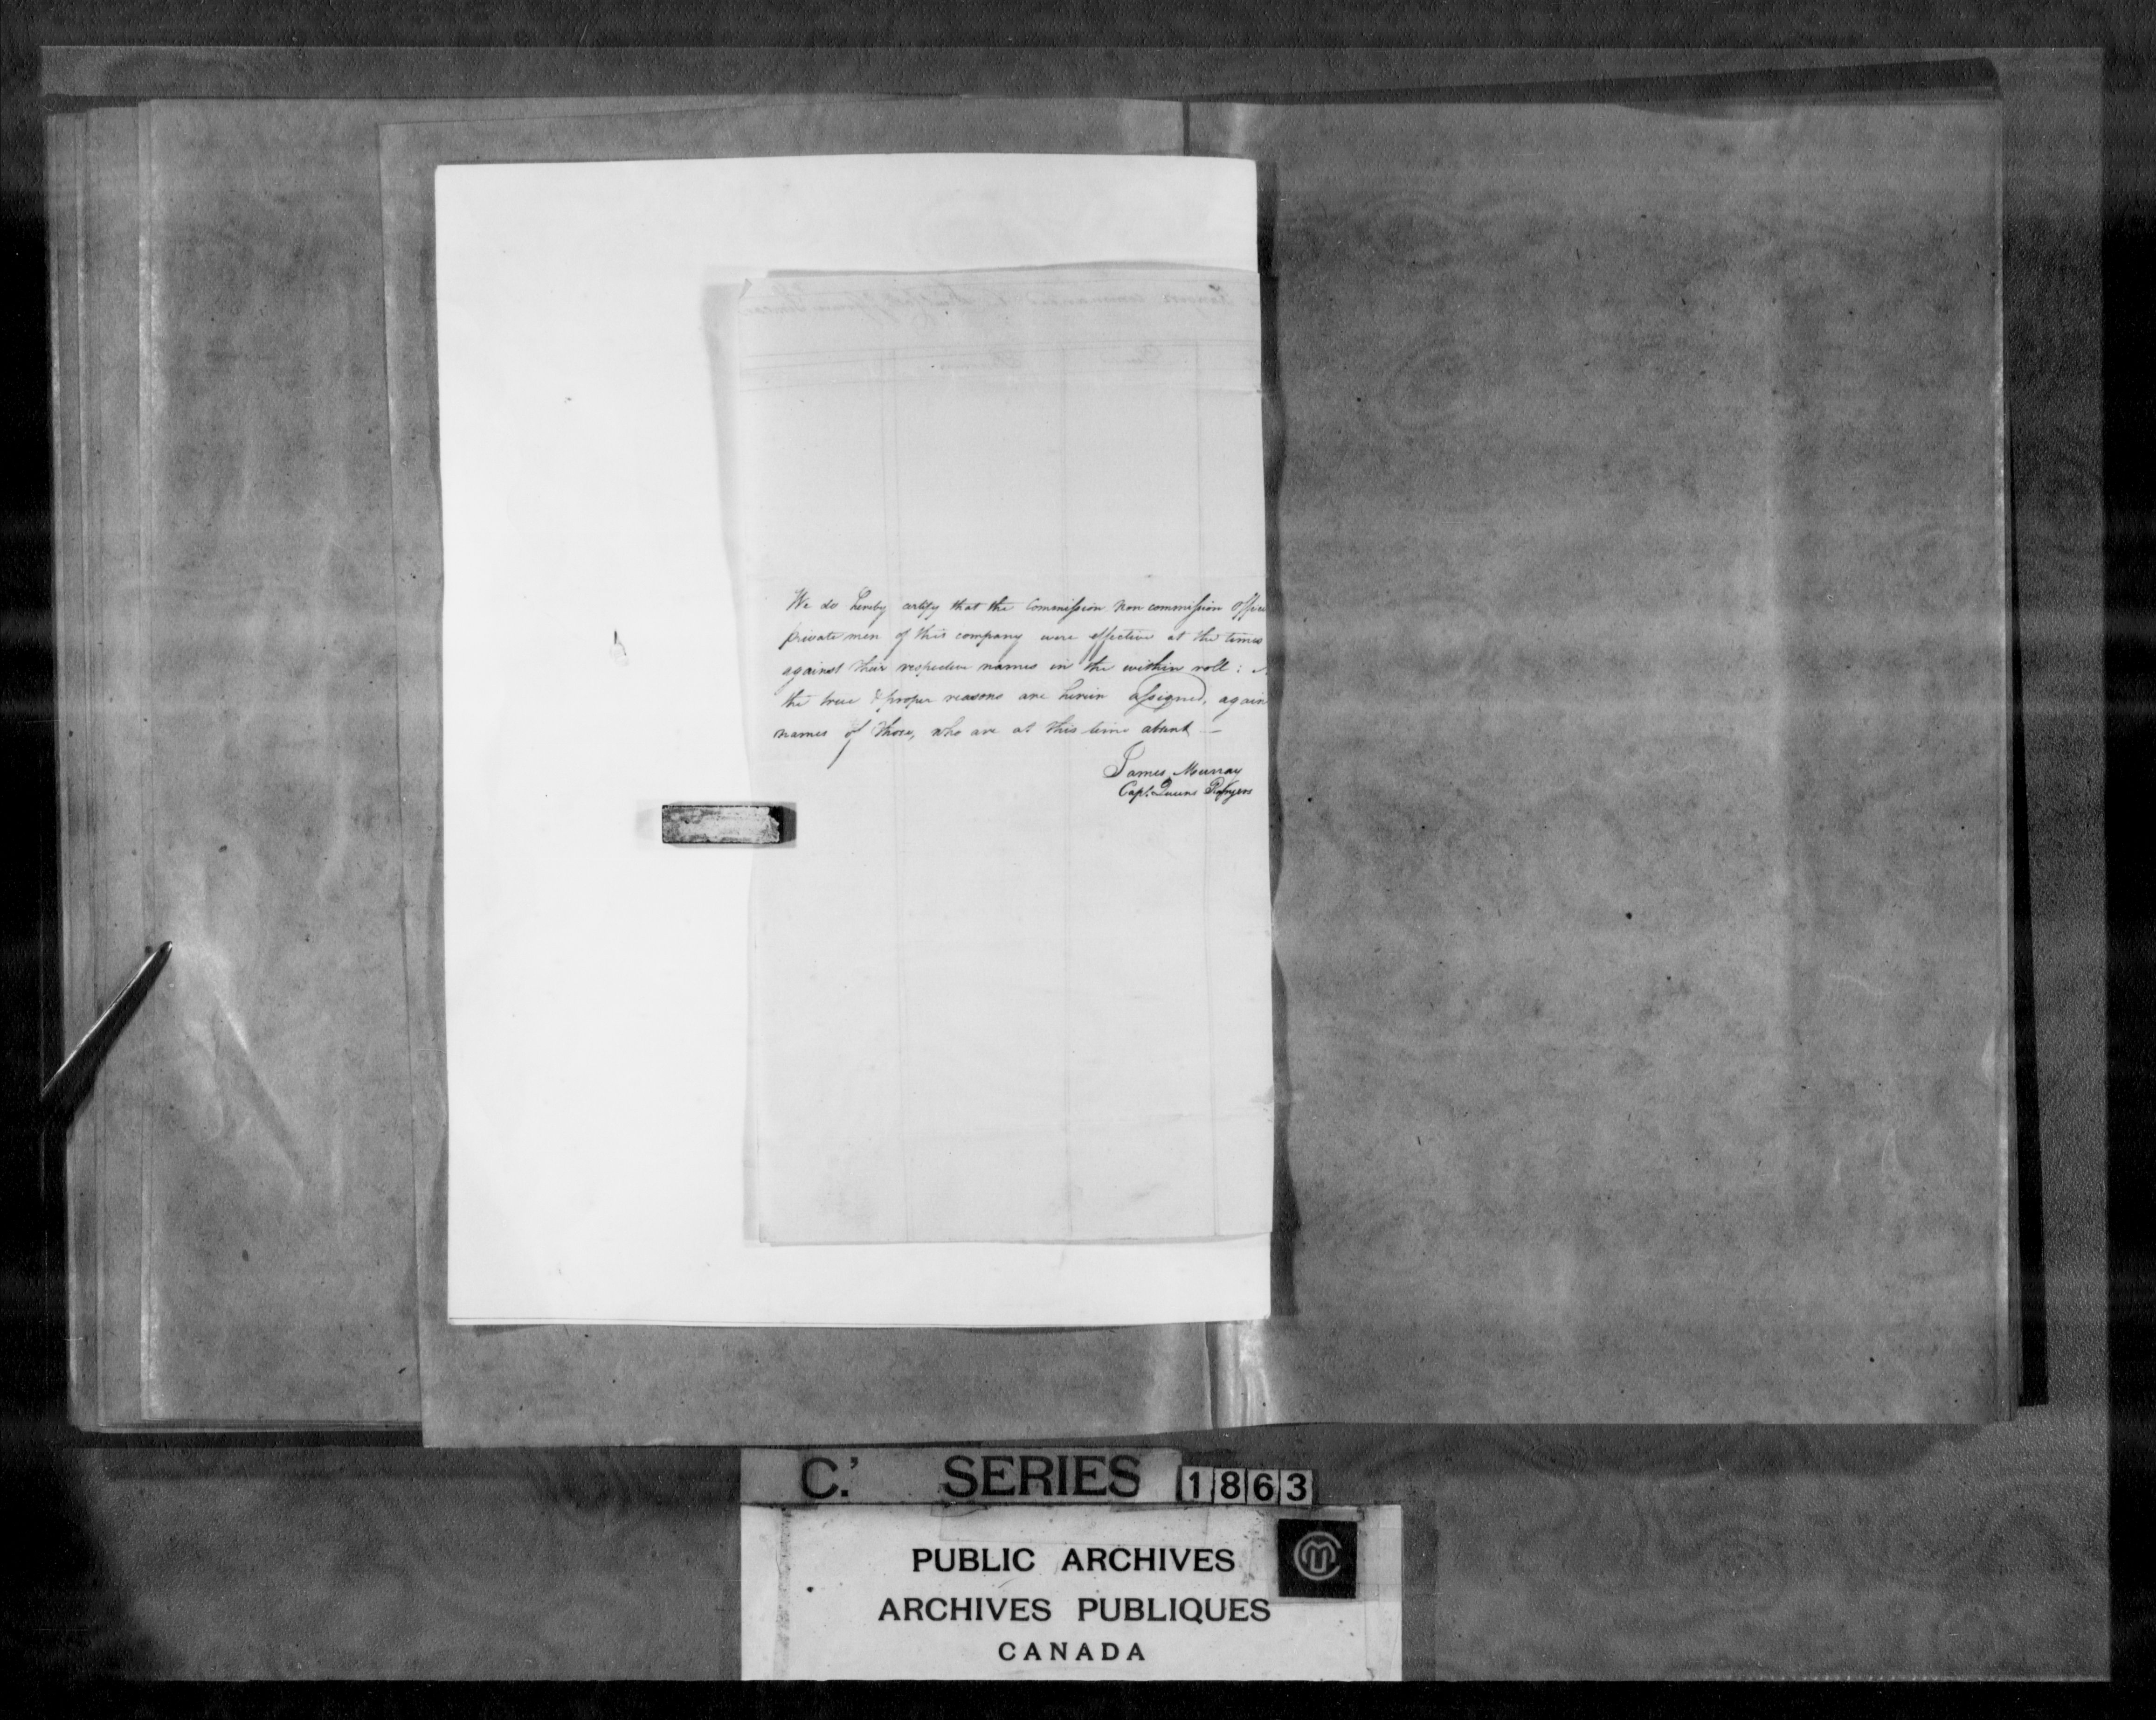 We do hereby certify that the Commission Non commission Offic
private men of this company were effective at the times
against their respective names in the within roll :
the true & proper reasons are herein assigned, again
names of those, who are at this time absent —
James Murray
Capt. Queens Rangers
C.' SERIES 1863
PUBLIC ARCHIVES
ARCHIVES PUBLIQUES
CANADA